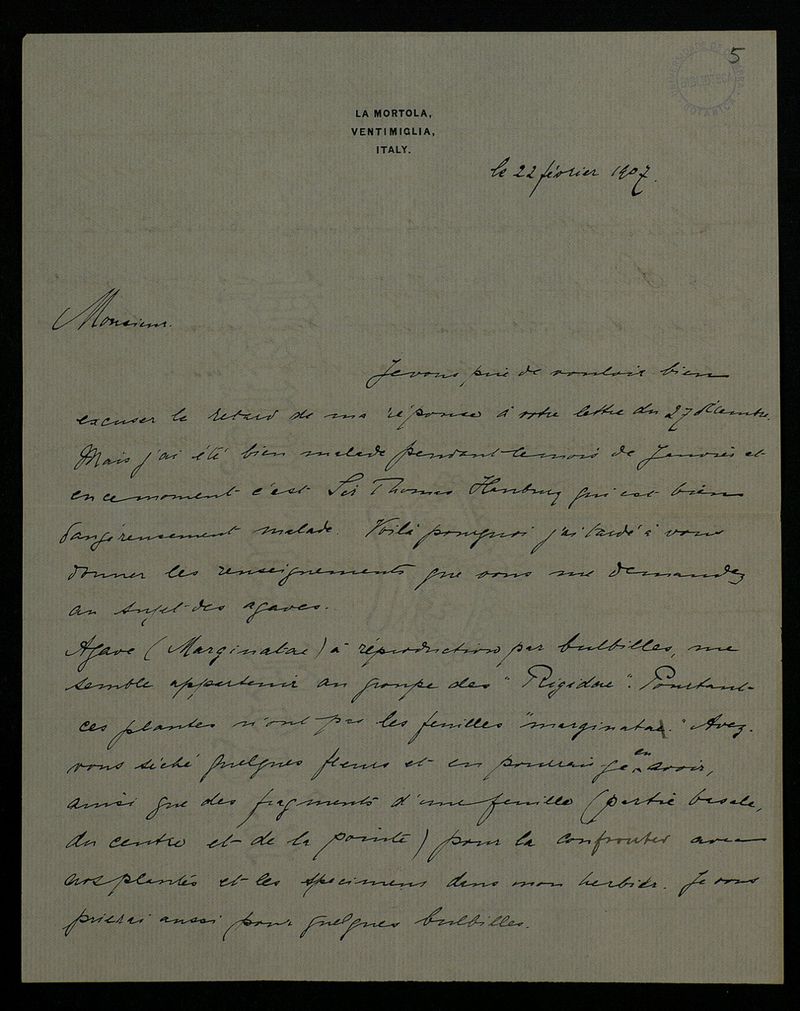 5
BIBLIOTECA
LA MORTOLA,
VENTIMIGLIA,
ITALY.
le 22 février 1907.
Monsieur.
Je vous prie de vouloir bien
excuser le retard de ma réponse à votre lettre du 27 décembre.
Mais j'ai été bien malade pendant le mois de Janvier et
en ce moment c'est Sir Thomas Hanbury qui est bien
dangéreusement malade. Voilà pourquoi j'ai tardé à vous
donner les renseignements que vous me demandez
au sujet des agaves.
Agave (Marginatae) à réproduction par bulbilles, me
semble appartenir au groupe des "Rigidae". Pourtant
ces plantes n'ont pas les feuilles "marginatae." Avez-
vous séché quelques fleurs et en pourrais ge en avoir,
ainsi que des fragments d'une feuille (partie basale,
du centre et de la pointe) pour la confronter avec
nos plantes et les specimens dans mon herbier. Je vous
prierai aussi pour quelques bulbilles.